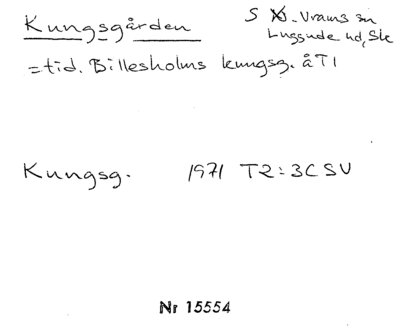 Kungsgården
S N. Vrams sn
Luggude hd, Skå
=tid. Billesholms kungsg. å T1
Kungsg. 1971 T2:3C SV
Nr 15554